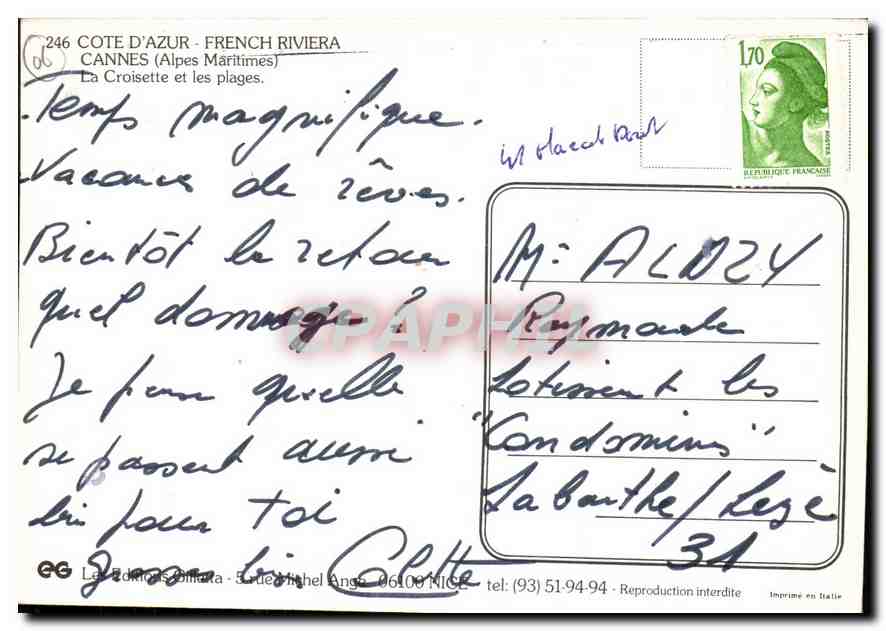 06
246 COTE D'AZUR - FRENCH RIVIERA
CANNES (Alpes Maritimes)
La Croisette et les plages.
Temps magnifique.
Vacances de rêves.
Bientôt le retour
quel dommage!
Je pense qu'elle
se passent aussi
bin pour toi
Grosses bises Colette
1,70
POSTES
REPUBLIQUE FRANÇAISE
Me ALNZY
Raymonde
Lotissement les
"Condomines"
Labarthe/Lezè
31
CPAPHIL
EG Les Editions Gilletta - 5 rue Michel Ange - 06100 NICE - tel: (93) 51-94-94 - Reproduction interdite
Imprimé en Italie